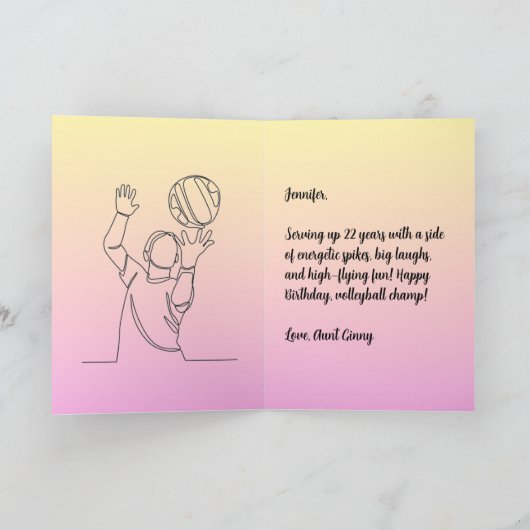 Jennifer,
Serving up 22 years with a side
of energetic spikes, big laughs,
and high-flying fun! Happy
Birthday, volleyball champ!
Love, Aunt Ginny